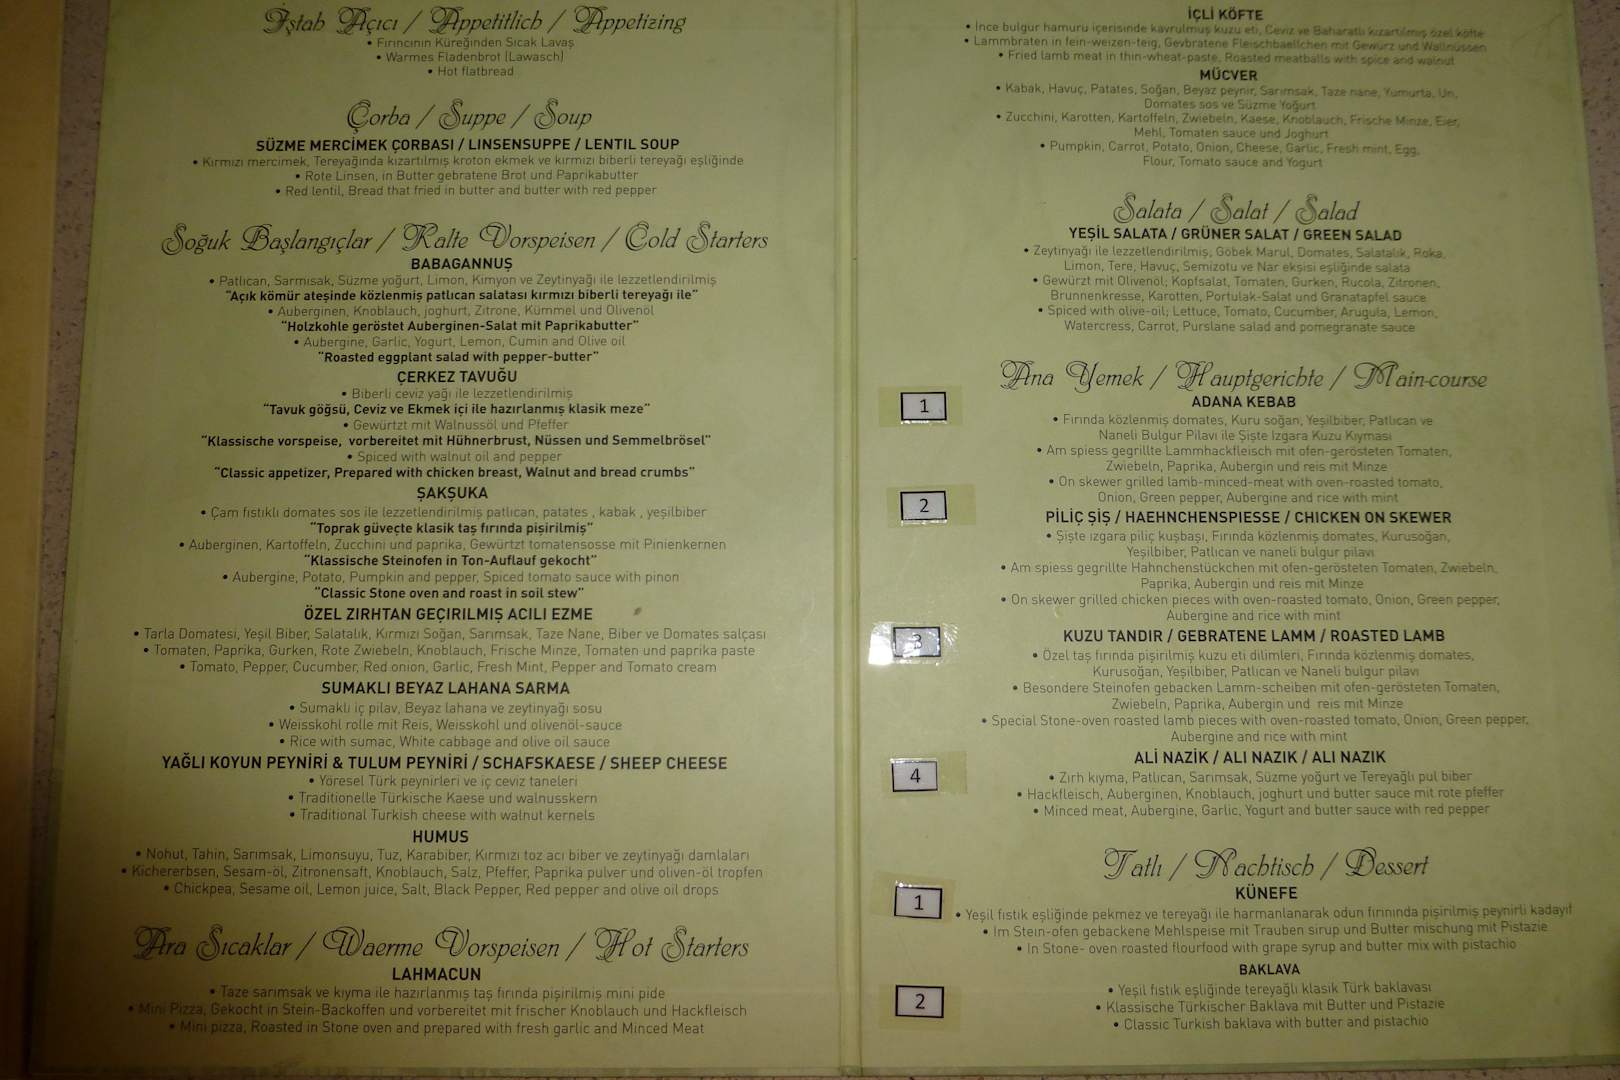 İştah Açıcı / Appetitlich / Appetizing
• Fırıncının Küreğinden Sıcak Lavaş
• Warmes Fladenbrot (Lawasch)
• Hot flatbread
Çorba / Suppe / Soup
SÜZME MERCİMEK ÇORBASI / LINSENSUPPE / LENTIL SOUP
• Kırmızı mercimek, Tereyağında kızartılmış kroton ekmek ve kırmızı biberli tereyağı eşliğinde
• Rote Linsen, in Butter gebratene Brot und Paprikabutter
• Red lentil, Bread that fried in butter and butter with red pepper
Soğuk Başlangıçlar / Kalte Vorspeisen / Cold Starters
BABAGANNUŞ
• Patlıcan, Sarmısak, Süzme yoğurt, Limon, Kimyon ve Zeytinyağı ile lezzetlendirilmiş
"Açık kömür ateşinde közlenmiş patlıcan salatası kırmızı biberli tereyağı ile"
• Auberginen, Knoblauch, joghurt, Zitrone, Kümmel und Olivenöl
"Holzkohle geröstet Auberginen-Salat mit Paprikabutter"
• Aubergine, Garlic, Yogurt, Lemon, Cumin and Olive oil
"Roasted eggplant salad with pepper-butter"
ÇERKEZ TAVUĞU
• Biberli ceviz yağı ile lezzetlendirilmiş
"Tavuk göğsü, Ceviz ve Ekmek içi ile hazırlanmış klasik meze"
• Gewürtzt mit Walnussöl und Pfeffer
"Klassische vorspeise, vorbereitet mit Hühnerbrust, Nüssen und Semmelbrösel"
• Spiced with walnut oil and pepper
"Classic appetizer, Prepared with chicken breast, Walnut and bread crumbs"
ŞAKŞUKA
• Çam fıstıklı domates sos ile lezzetlendirilmiş patlıcan, patates , kabak , yeşilbiber
"Toprak güveçte klasik taş fırında pişirilmiş"
• Auberginen, Kartoffeln, Zucchini und paprika, Gewürtzt tomatensosse mit Pinienkernen
"Klassische Steinofen in Ton-Auflauf gekocht"
• Aubergine, Potato, Pumpkin and pepper, Spiced tomato sauce with pinon
"Classic Stone oven and roast in soil stew"
ÖZEL ZIRHTAN GEÇIRILMIŞ ACILI EZME
• Tarla Domatesi, Yeşil Biber, Salatalık, Kırmızı Soğan, Sarımsak, Taze Nane, Biber ve Domates salçası
• Tomaten, Paprika, Gurken, Rote Zwiebeln, Knoblauch, Frische Minze, Tomaten und paprika paste
• Tomato, Pepper, Cucumber, Red onion, Garlic, Fresh Mint, Pepper and Tomato cream
SUMAKLI BEYAZ LAHANA SARMA
• Sumaklı iç pilav, Beyaz lahana ve zeytinyağı sosu
• Weisskohl rolle mit Reis, Weisskohl und olivenöl-sauce
• Rice with sumac, White cabbage and olive oil sauce
YAĞLI KOYUN PEYNİRİ & TULUM PEYNİRİ / SCHAFSKAESE / SHEEP CHEESE
• Yöresel Türk peynirleri ve iç ceviz taneleri
• Traditionelle Türkische Kaese und walnusskern
• Traditional Turkish cheese with walnut kernels
HUMUS
• Nohut, Tahin, Sarımsak, Limonsuyu, Tuz, Karabiber, Kırmızı toz acı biber ve zeytinyağı damlaları
• Kichererbsen, Sesam-öl, Zitronensaft, Knoblauch, Salz, Pfeffer, Paprika pulver und oliven-öl tropfen
• Chickpea, Sesame oil, Lemon juice, Salt, Black Pepper, Red pepper and olive oil drops
Ara Sıcaklar / Waerme Vorspeisen / Hot Starters
LAHMACUN
• Taze sarımsak ve kıyma ile hazırlanmış taş fırında pişirilmiş mini pide
• Mini Pizza, Gekocht in Stein-Backoffen und vorbereitet mit frischer Knoblauch und Hackfleisch
• Mini pizza, Roasted in Stone oven and prepared with fresh garlic and Minced Meat
İÇLİ KÖFTE
• İnce bulgur hamuru içerisinde kavrulmuş kuzu eti, Ceviz ve Baharatlı kızartılmış özel köfte
• Lammbraten in fein-weizen-teig, Gevbratene Fleischbaellchen mit Gewürz und Wallnüssen
• Fried lamb meat in thin-wheat-paste, Roasted meatballs with spice and walnut
MÜCVER
• Kabak, Havuç, Patates, Soğan, Beyaz peynir, Sarımsak, Taze nane, Yumurta, Un,
Domates sos ve Süzme Yoğurt
• Zucchini, Karotten, Kartoffeln, Zwiebeln, Kaese, Knoblauch, Frische Minze, Eier,
Mehl, Tomaten sauce und Joghurt
• Pumpkin, Carrot, Potato, Onion, Cheese, Garlic, Fresh mint, Egg,
Flour, Tomato sauce and Yogurt
Salata / Salat / Salad
YEŞİL SALATA / GRÜNER SALAT / GREEN SALAD
• Zeytinyağı ile lezzetlendirilmiş; Göbek Marul, Domates, Salatalık, Roka,
Limon, Tere, Havuç, Semizotu ve Nar ekşisi eşliğinde salata
• Gewürzt mit Olivenöl; Kopfsalat, Tomaten, Gurken, Rucola, Zitronen,
Brunnenkresse, Karotten, Portulak-Salat und Granatapfel sauce
• Spiced with olive-oil; Lettuce, Tomato, Cucumber, Arugula, Lemon,
Watercress, Carrot, Purslane salad and pomegranate sauce
Ana Yemek / Hauptgerichte / Main-course
1 ADANA KEBAB
• Fırında közlenmiş domates, Kuru soğan, Yeşilbiber, Patlıcan ve
Naneli Bulgur Pilavı ile Şişte Izgara Kuzu Kıyması
• Am spiess gegrillte Lammhackfleisch mit ofen-gerösteten Tomaten,
Zwiebeln, Paprika, Aubergin und reis mit Minze
• On skewer grilled lamb-minced-meat with oven-roasted tomato,
Onion, Green pepper, Aubergine and rice with mint
2 PİLİÇ ŞİŞ / HAEHNCHENSPIESSE / CHICKEN ON SKEWER
• Şişte ızgara piliç kuşbaşı, Fırında közlenmiş domates, Kurusoğan,
Yeşilbiber, Patlıcan ve naneli bulgur pilavı
• Am spiess gegrillte Hahnchenstückchen mit ofen-gerösteten Tomaten, Zwiebeln,
Paprika, Aubergin und reis mit Minze
• On skewer grilled chicken pieces with oven-roasted tomato, Onion, Green pepper,
Aubergine and rice with mint
3 KUZU TANDIR / GEBRATENE LAMM / ROASTED LAMB
• Özel taş fırında pişirilmiş kuzu eti dilimleri, Fırında közlenmiş domates,
Kurusoğan, Yeşilbiber, Patlıcan ve Naneli bulgur pilavı
• Besondere Steinofen gebacken Lamm-scheiben mit ofen-gerösteten Tomaten,
Zwiebeln, Paprika, Aubergin und reis mit Minze
• Special Stone-oven roasted lamb pieces with oven-roasted tomato, Onion, Green pepper,
Aubergine and rice with mint
4 ALİ NAZİK / ALI NAZIK / ALI NAZIK
• Zırh kıyma, Patlıcan, Sarımsak, Süzme yoğurt ve Tereyağlı pul biber
• Hackfleisch, Auberginen, Knoblauch, joghurt und butter sauce mit rote pfeffer
• Minced meat, Aubergine, Garlic, Yogurt and butter sauce with red pepper
Tatlı / Nachtisch / Dessert
1 KÜNEFE
• Yeşil fıstık eşliğinde pekmez ve tereyağı ile harmanlanarak odun fırınında pişirilmiş peynirli kadayıf
• Im Stein-ofen gebackene Mehlspeise mit Trauben sirup und Butter mischung mit Pistazie
• In Stone- oven roasted flourfood with grape syrup and butter mix with pistachio
2 BAKLAVA
• Yeşil fıstık eşliğinde tereyağlı klasik Türk baklavası
• Klassische Türkischer Baklava mit Butter und Pistazie
• Classic Turkish baklava with butter and pistachio